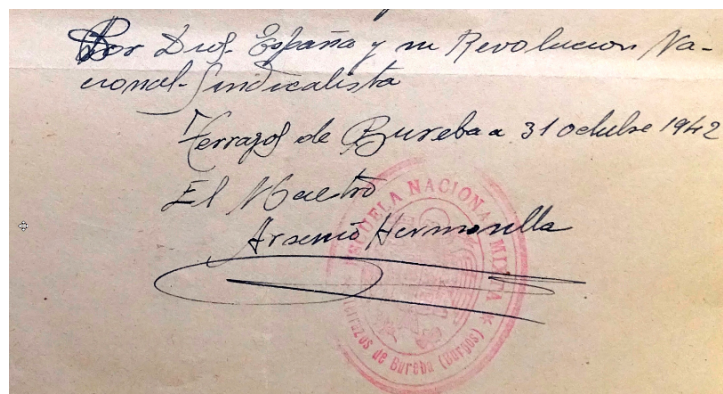 Por Dios España y su Revolucion Na-
cional-Sindicalista
Terrazos de Bureba a 31 octubre 1942
El Maestro
Arsenio Hermosilla
ESCUELA NACIONAL MIXTA
* Terrazos de Bureba (Burgos) *